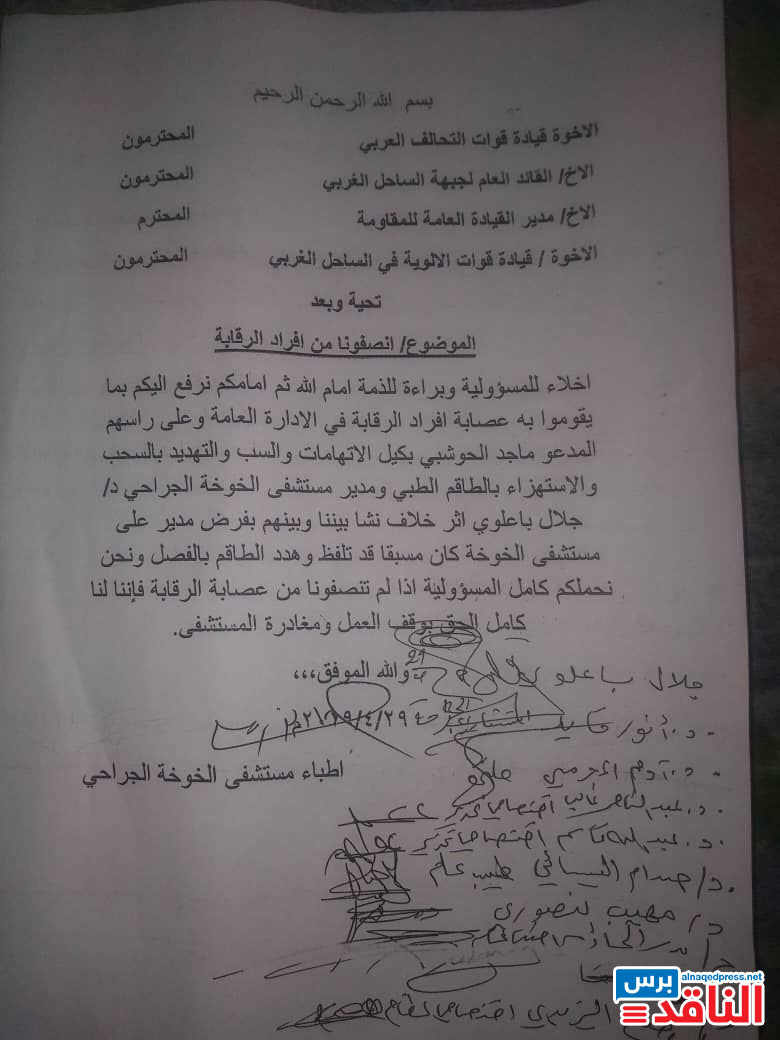 بسم الله الرحمن الرحيم
الاخوة قيادة قوات التحالف العربي المحترمون
الاخ/ القائد العام لجبهة الساحل الغربي المحترمون
الاخ/ مدير القيادة العامة للمقاومة المحترم
الاخوة / قيادة قوات الالوية في الساحل الغربي المحترمون
تحية وبعد
الموضوع/ انصفونا من افراد الرقابة
اخلاء للمسؤولية وبراءة للذمة امام الله ثم امامكم نرفع اليكم بما
يقوموا به عصابة افراد الرقابة في الادارة العامة وعلى راسهم
المدعو ماجد الحوشبي بكيل الاتهامات والسب والتهديد بالسحب
والاستهزاء بالطاقم الطبي ومدير مستشفى الخوخة الجراحي د/
جلال باعلوي اثر خلاف نشا بيننا وبينهم بفرض مدير على
مستشفى الخوخة كان مسبقا قد تلفظ وهدد الطاقم بالفصل ونحن
نحملكم كامل المسؤولية اذا لم تنصفونا من عصابة الرقابة فإننا لنا
كامل الحق بوقف العمل ومغادرة المستشفى.
والله الموفق،،،
جلال باعلوي
د. أنور
٢٠١٩/٤/٢٩م
اطباء مستشفى الخوخة الجراحي
د. آدم
د. عبد الناصر غالب اختصاصي تخدير
د. عبدالله قاسم اختصاصي تخدير
د/ صدام طبيب عام
د/ مهيب
د/ بدر
اختصاصي عظام
alnaqedpress.net
الناقد برس